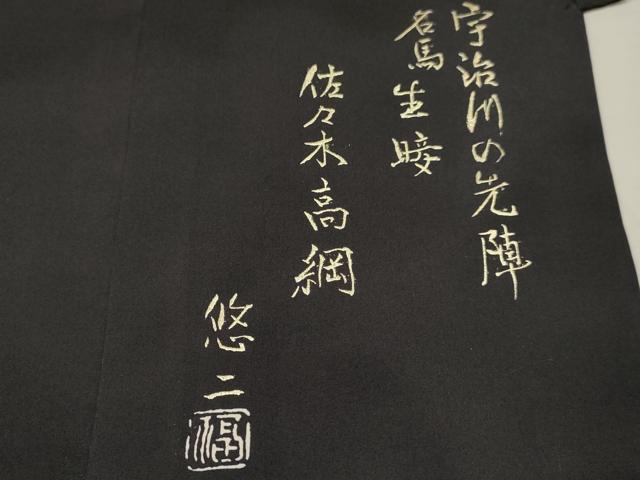 宇治川の先陣
名馬生唼
佐々木高綱
悠二
福